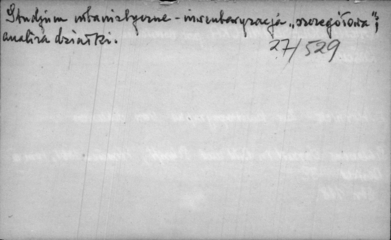 Studjum urbanistyczne - inwentaryzacja „szczegółowa" i
analiza działki.
27/529